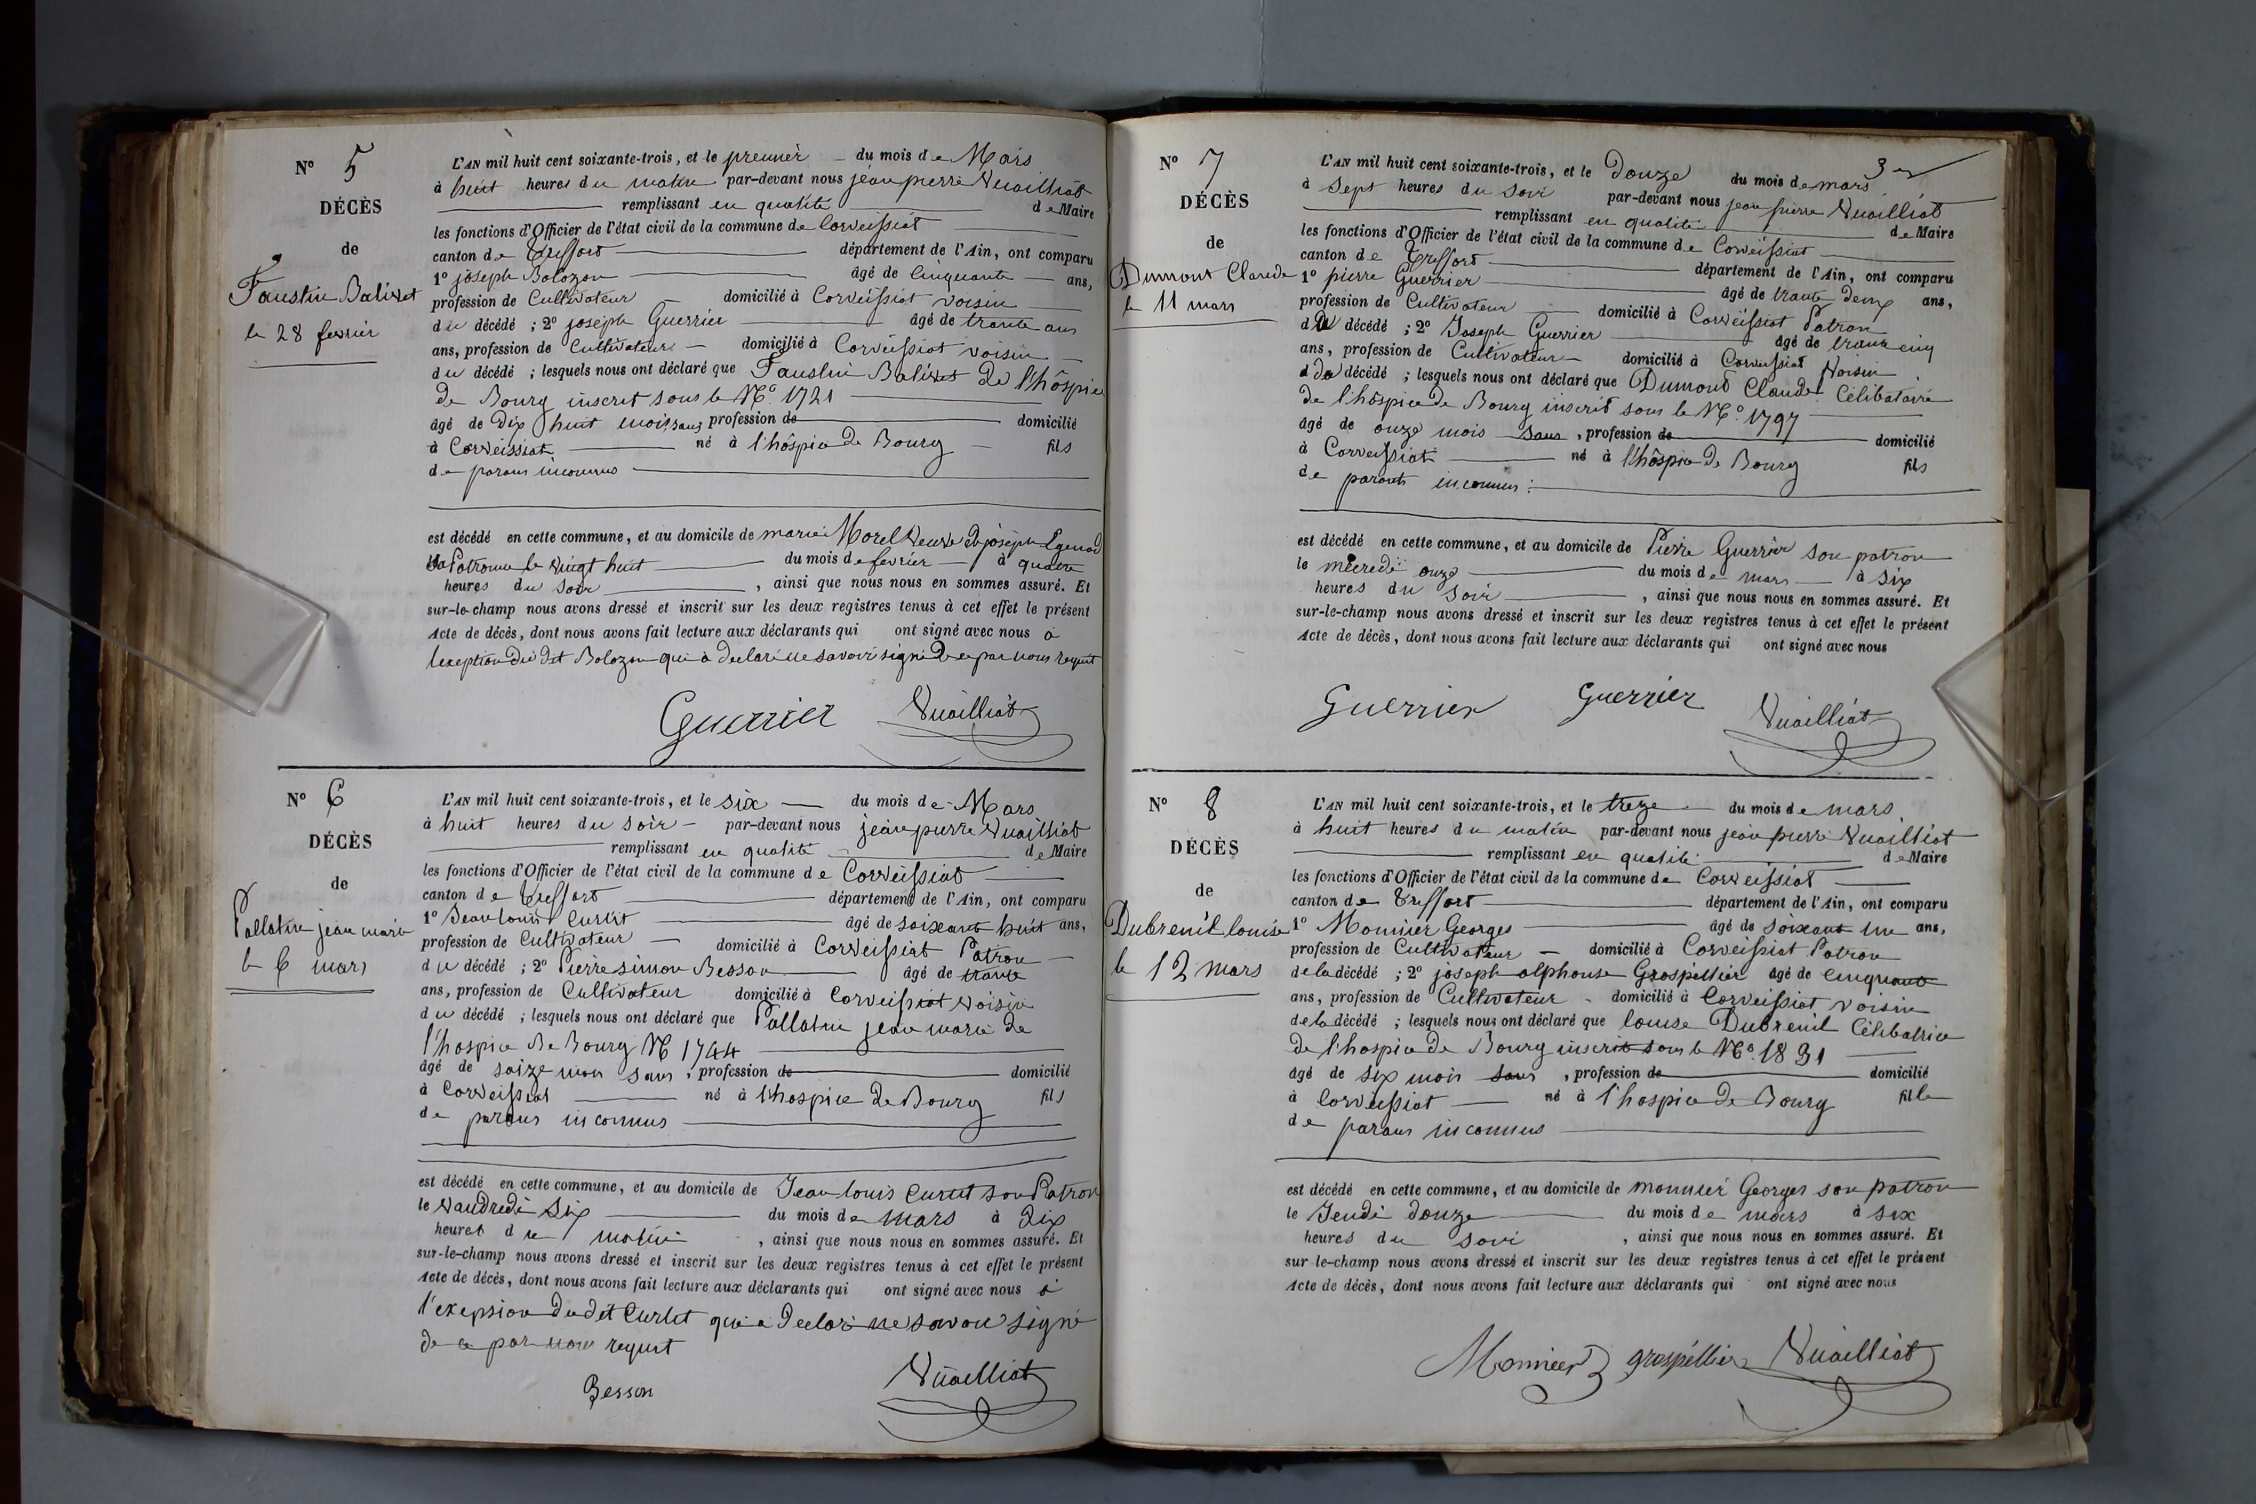 N° 5
DÉCÈS
de
Faustin Balivet
le 28 fevrier
L'AN mil huit cent soixante-trois, et le premier du mois de Mars
à huit heures du matin par-devant nous jean pierre Vuailliat
remplissant en qualité de Maire
les fonctions d'Officier de l'état civil de la commune de Corveissiat
canton de Treffort département de l'Ain, ont comparu
1° joseph Bolozon âgé de Cinquante ans,
profession de Cultivateur domicilié à Corveissiat voisin
du décédé ; 2° joseph Guerrier âgé de trante ans
ans, profession de Cultivateur domicilié à Corveissiat voisin
du décédé ; lesquels nous ont déclaré que Faustin Balivet de l'hôspice
de Bourg inscrit sous le N° 1721
âgé de dix huit mois, sans profession de domicilié
à Corveissiat né à l'hôspice de Bourg fils
de parans inconnus
est décédé en cette commune, et au domicile de marie Morel veuve de joseph
sa Patronne le vingt huit du mois de fevrier à quatre
heures du soir , ainsi que nous nous en sommes assuré. Et
sur-le-champ nous avons dressé et inscrit sur les deux registres tenus à cet effet le présent
Acte de décès, dont nous avons fait lecture aux déclarants qui ont signé avec nous à
lexeption du dit Bolozon qui à declaré ne savoir signé de ce par nous requit
Guerrier Vuailliat
N° 6
DÉCÈS
de
Pallatin jean marie
le 6 mars
L'AN mil huit cent soixante-trois, et le six du mois de Mars
à huit heures du soir par-devant nous jean pierre Vuailliat
remplissant en qualité de Maire
les fonctions d'Officier de l'état civil de la commune de Corveissiat
canton de Treffort département de l'Ain, ont comparu
1° Jean louis Curlet âgé de soixante huit ans,
profession de Cultivateur domicilié à Corveissiat Patron
du décédé ; 2° Pierre simon Besson âgé de trante
ans, profession de Cultivateur domicilié à Corveissiat voisin
du décédé ; lesquels nous ont déclaré que Pallatin jean marie de
l'hospice de Bourg N° 1744
âgé de saize mois sans, profession de domicilié
à Corveissiat né à l'hospice de Bourg fils
de parans inconnus
est décédé en cette commune, et au domicile de Jean louis Curlet son Patron
le vandredi six du mois de mars à dix
heures du matin , ainsi que nous nous en sommes assuré. Et
sur-le-champ nous avons dressé et inscrit sur les deux registres tenus à cet effet le présent
Acte de décès, dont nous avons fait lecture aux déclarants qui ont signé avec nous à
l'exepsion du dit Curlet qui a declaré ne savoir signé
de ce par nous requit
Besson Vuailliat
3
N° 7
DÉCÈS
de
Dumont Claude
le 11 mars
L'AN mil huit cent soixante-trois, et le douze du mois de mars
à sept heures du soir par-devant nous jean pierre Vuailliat
remplissant en qualité de Maire
les fonctions d'Officier de l'état civil de la commune de Corveissiat
canton de Treffort département de l'Ain, ont comparu
1° pierre Guerrier âgé de trante deux ans,
profession de Cultivateur domicilié à Corveissiat Patron
du décédé ; 2° Joseph Guerrier âgé de trante cinq
ans, profession de Cultivateur domicilié à Corveissiat Voisin
du décédé ; lesquels nous ont déclaré que Dumont Claude Célibataire
de l'hôspice de Bourg inscrit sous le N° 1797
âgé de onze mois sans, profession de domicilié
à Corveissiat né à l'hôspice de Bourg fils
de parants inconnus :
est décédé en cette commune, et au domicile de Pierre Guerrier son patron
le mecredi onze du mois de mars à six
heures du soir , ainsi que nous nous en sommes assuré. Et
sur-le-champ nous avons dressé et inscrit sur les deux registres tenus à cet effet le présent
Acte de décès, dont nous avons fait lecture aux déclarants qui ont signé avec nous
Guerrier Guerrier Vuailliat
N° 8
DÉCÈS
de
Dubreuil louise
le 12 mars
L'AN mil huit cent soixante-trois, et le treze du mois de mars
à huit heures du matin par-devant nous jean pierre Vuailliat
remplissant en qualité de Maire
les fonctions d'Officier de l'état civil de la commune de Corveissiat
canton de Treffort département de l'Ain, ont comparu
1° Monnier Georges âgé de soixant un ans,
profession de Cultivateur domicilié à Corveissiat Patron
de la décédé ; 2° joseph alphonse Grospellier âgé de cinquante
ans, profession de Cultivateur domicilié à Corveissiat voisin
de la décédé ; lesquels nous ont déclaré que louise Dubreuil Célibatrice
de l'hospice de Bourg inscrit sous le N° 1831
âgé de six mois sans, profession de domicilié
à Corveissiat né à l'hospice de Bourg fille
de parans inconnus
est décédé en cette commune, et au domicile de monnier Georges son patron
le Jeudi douze du mois de mars à six
heures du soir , ainsi que nous nous en sommes assuré. Et
sur-le-champ nous avons dressé et inscrit sur les deux registres tenus à cet effet le présent
Acte de décès, dont nous avons fait lecture aux déclarants qui ont signé avec nous
Monnier grospellier Vuailliat